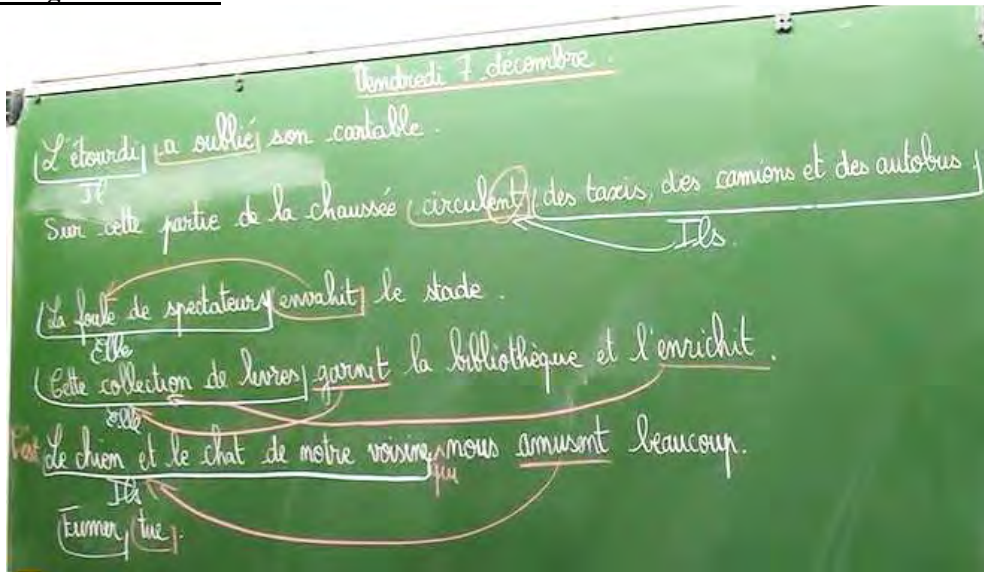 Vendredi 7 décembre.
L'étourdi a oublié son cartable.
Il
Sur cette partie de la chaussée circulent des taxis, des camions et des autobus.
Ils.
La foule de spectateurs envahit le stade.
Elle
Cette collection de livres garnit la bibliothèque et l'enrichit.
Elle
C'est Le chien et le chat de notre voisine qui nous amusent beaucoup.
Ils
Fumer tue.